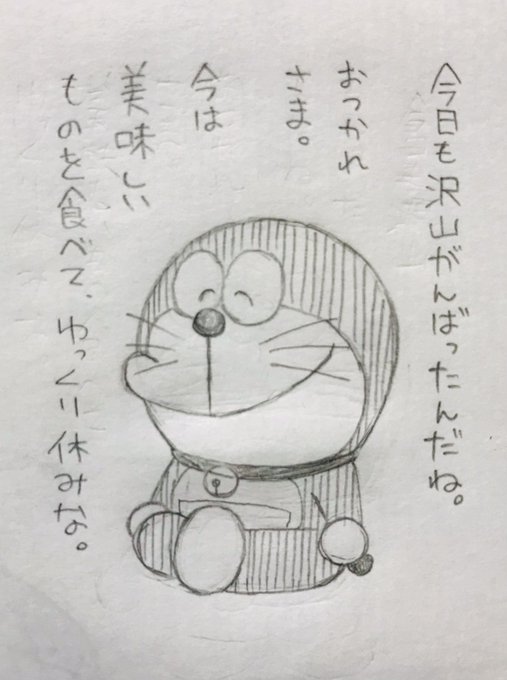 今日も沢山がんばったんだね。
おつかれ
さま。
今は
美味しい
ものを食べて、ゆっくり休みな。